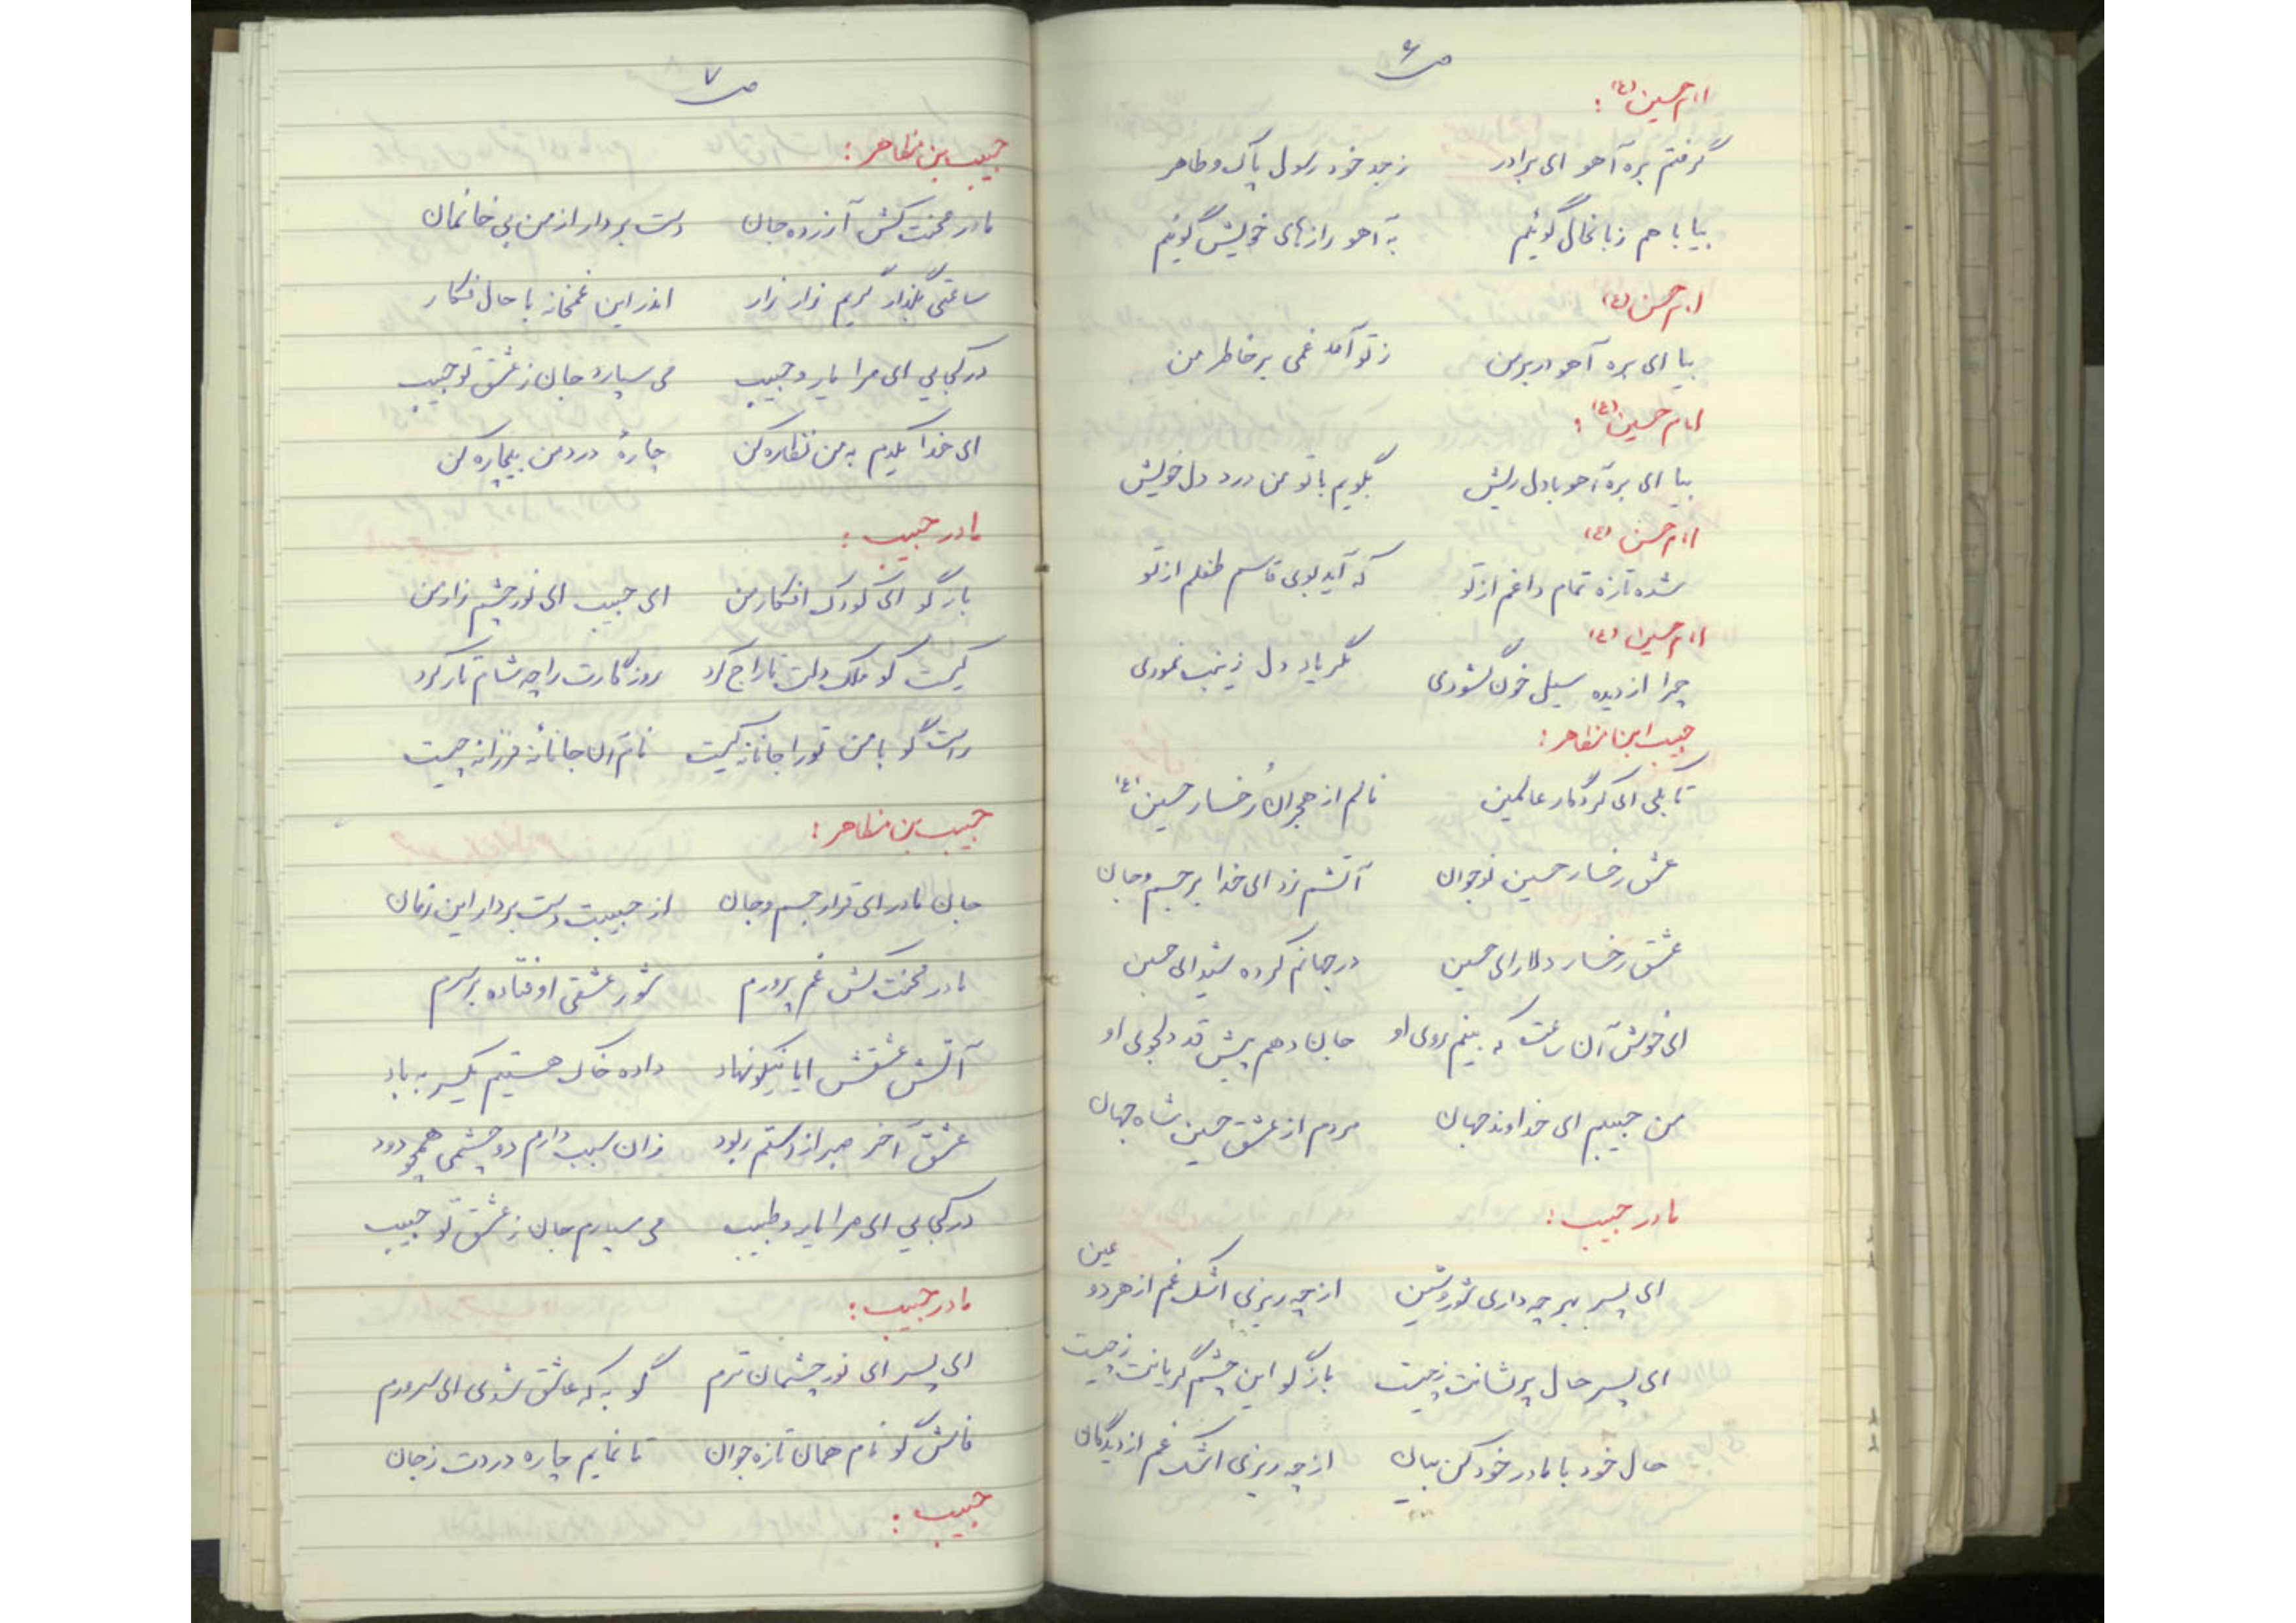 ص ۶
امام حسین (ع) :
گرفتم بره آهو ای برادر ز جد خود رسول پاک و طاهر
بیا با هم زبانحال گوئیم به آهو رازهای خویش گوئیم
امام حسن (ع)
بیا ای بره آهو در بر من ز تو آمد غمی بر خاطر من
امام حسین (ع) :
بیا ای بره آهو با دل ریش بگویم با تو من درد دل خویش
امام حسن (ع)
شده تازه تمام داغم از تو که آید بوی قاسم طفلم از تو
امام حسین (ع)
چرا از دیده سیل خون گشودی مگر یاد دل زینب نمودی
حبیب ابن مظاهر :
تا بکی ای کردگار عالمین نالم از هجران رخسار حسین (ع)
عشق رخسار حسین نوجوان آتشم زد ای خدا بر جسم و جان
عشق رخسار دلارای حسین در جهانم کرده شیدای حسین
ای خوش آن ساعت که بینم روی او جان دهم پیش قد دلجوی او
من حبیبم ای خداوند جهان مردم از عشق حسین شاه جهان
مادر حبیب :
ای پسر بهر چه داری شور و شین از چه ریزی اشک غم از هر دو عین
ای پسر حال پریشانت ز چیست بازگو این چشم گریانت ز چیست
حال خود با مادر خود کن بیان از چه ریزی اشک غم از دیدگان
ص ۷
حبیب بن مظاهر :
مادر محنت کش آزرده جان دست بردار از من بی خانمان
ساعتی بگذار گریم زار زار اندر این غمخانه با حال فکار
در کجایی ای مرا یار و حبیب می سپارد جان ز عشق تو حبیب
ای خدا یکدم به من نظاره کن چارهٔ درد من بیچاره کن
مادر حبیب :
بازگو ای کودک افکار من ای حبیب ای نور چشم زار من
کیست کو ملک دلت تاراج کرد روزگارت را چه شام تار کرد
راست گو با من تو را جانانه کیست نام آن جانانهٔ فرزانه چیست
حبیب بن مظاهر :
جان مادر ای قرار جسم و جان از حبیبت دست بردار این زمان
مادر محنت کش غم پرورم شور عشقی اوفتاده بر سرم
آتش عشقش ایا نیکو نهاد داده خاک هستیم یکسر به باد
عشق آخر صبر از دستم ربود زان سبب دارم دو چشمی همچو دود
در کجایی ای مرا یار و طبیب می سپارم جان ز عشق تو حبیب
مادر حبیب :
ای پسر ای نور چشمان ترم گو به که عاشق شدی ای سرورم
فاش گو نام همان تازه جوان تا نمایم چاره دردت ز جان
حبیب :